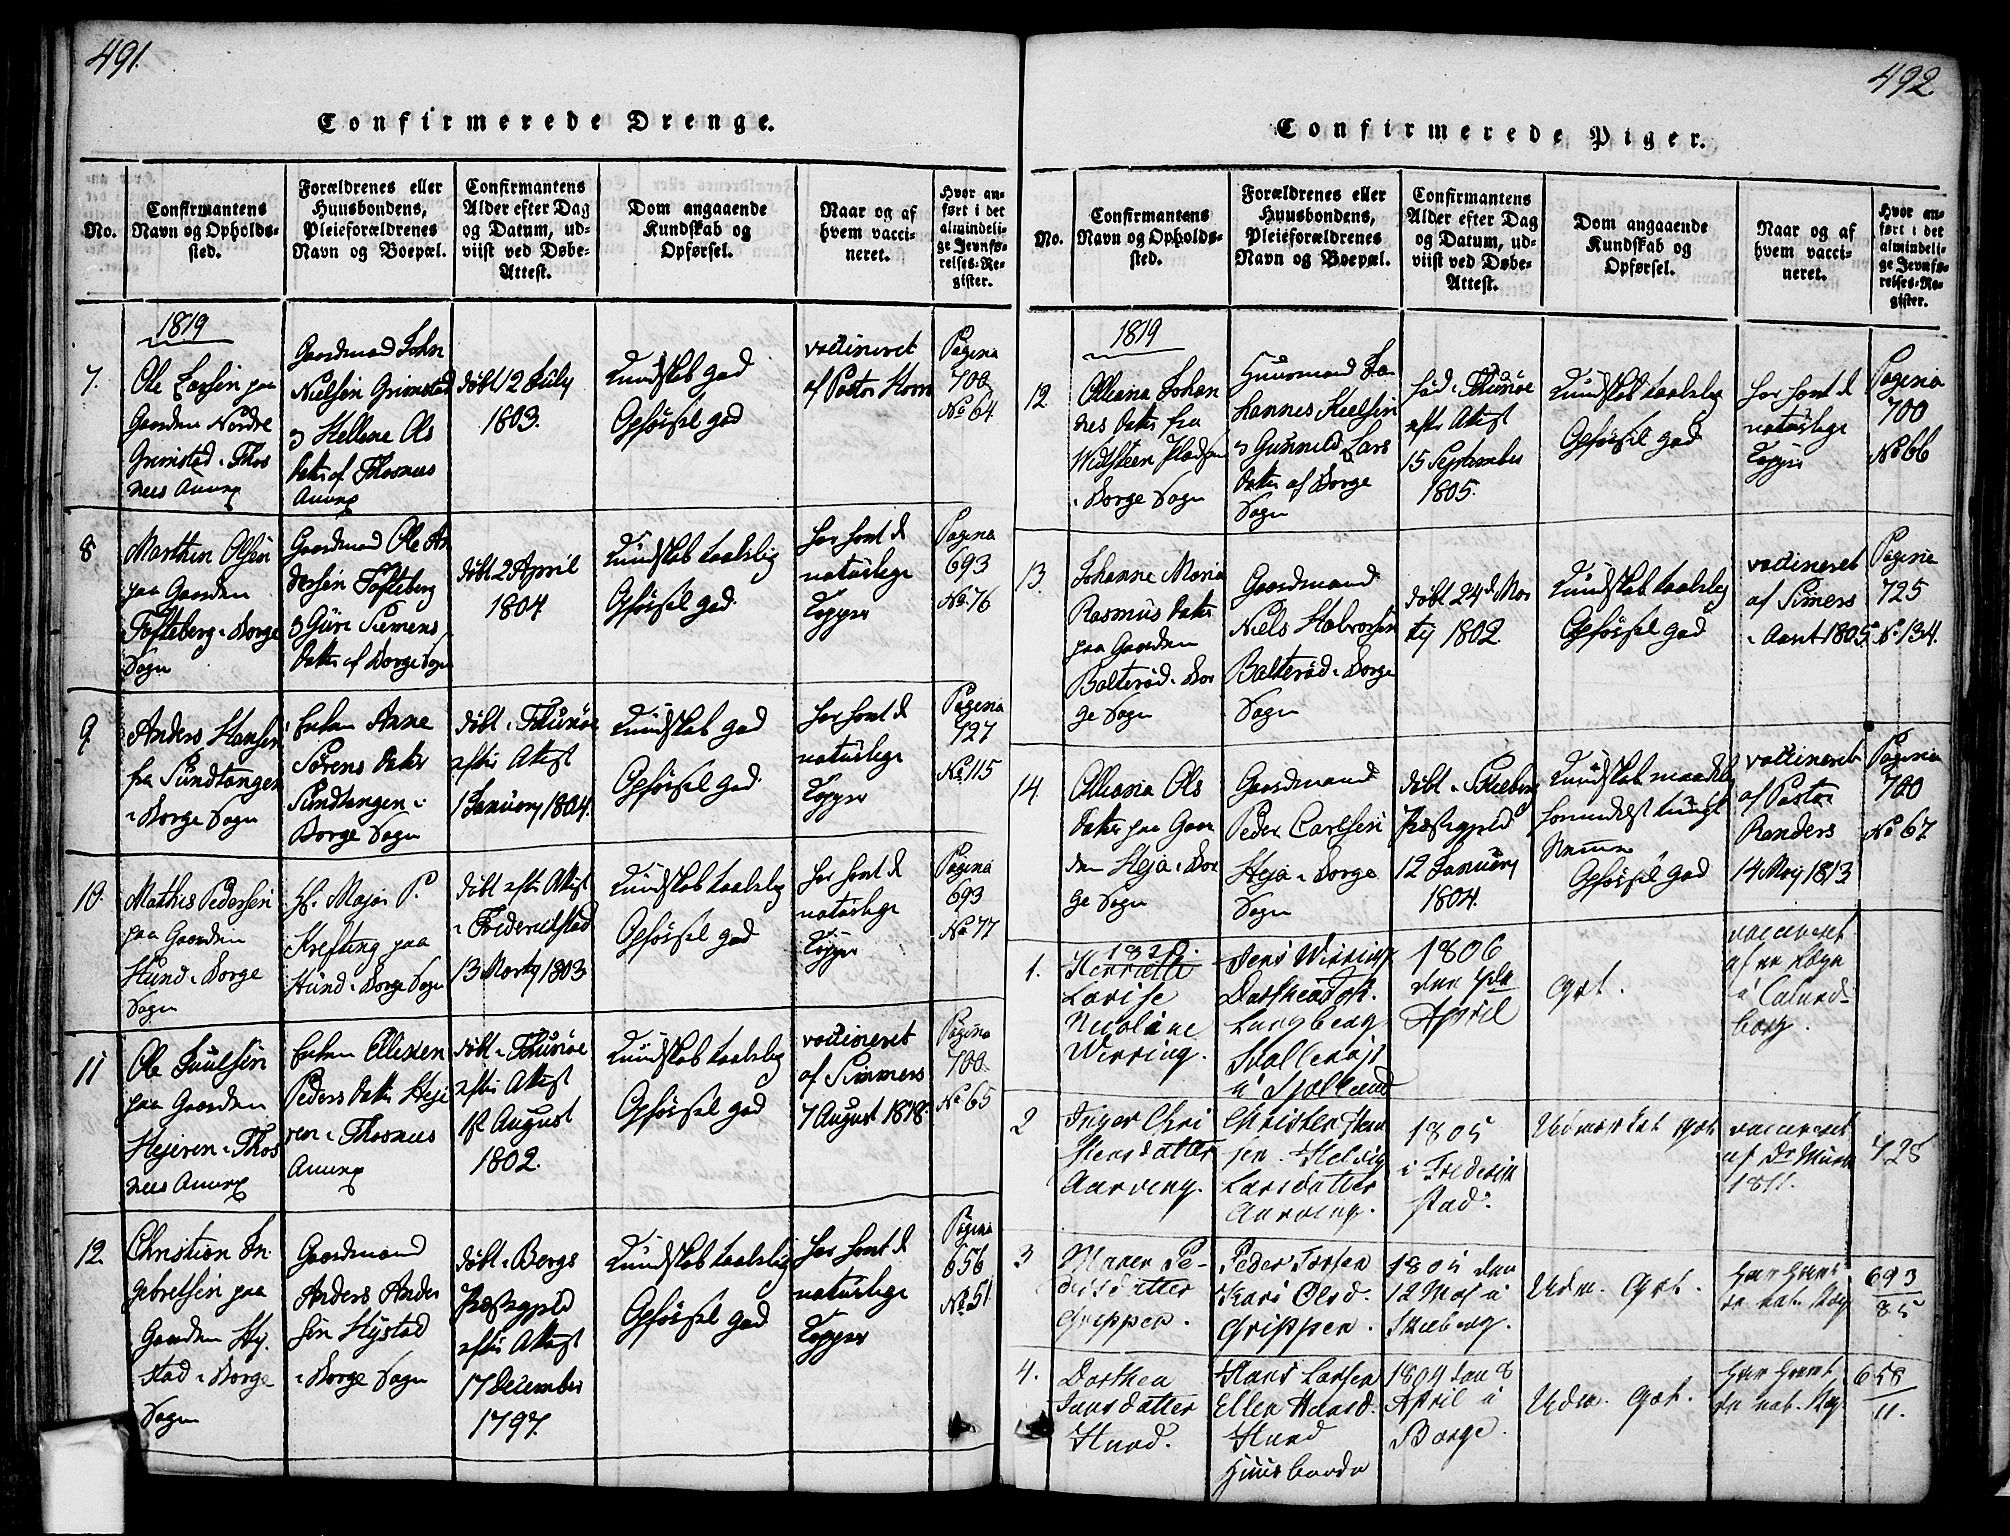 491.
Confirmerede Drenge.
No.
Confirmantens Navn og Opholds-sted.
Forældrenes eller Huusbondens, Pleieforældrenes Navn og Boepæl.
Confirmantens Alder efter Dag og Datum, ud-viist ved Døbe-Attest.
Dom angaaende Kundskab og Opførsel.
Naar og af hvem vacci-neret.
Hvor an-ført i det almindeli-ge Jevnfø-relses-Re-gister.
1819
7.
Ole Larsen paa
Gaarden Nordre
Grimstad i Thos
nees Annex
Gaardmand John
Nielsen Grimstad
og Hellene Ols
Datter af Thosnæs
Annex
døbt 12 July
1803.
Kundskab god
Opførsel god
vaccineret
af Pastor Horn
Pagina
700
No 64
8
Marthin Olsen
paa Gaarden
Tofteberg i Borge
Sogn
Gaardmand Ole An
dersen Tofteberg
og Guri Siemens
Datter af Borge Sogn
døbt 2 April
1804
Kundskab taalelig
Opførsel god.
har havt de
naturlige
Kopper
Pagina
693
No 76
9
Anders Hansen
fra Sundtangen
i Borge Sogn
Enken Anne
Sørens Datter
Sundtangen i
Borge Sogn
døbt i Thunøe
efter Attest
1 January 1804.
Kundskab god
Opførsel god
har havt de
naturlige
Kopper
Pagina
727
No 115
10.
Mathis Pedersen
paa Gaarden
Hund i Borge
Sogn
Hr. Major P.
Krefting paa
Hund i Borge Sogn
døbt efter Attest
i Friderichstad
13 Marty 1803
Kundskab taalelig
Opførsel god
har havt de
naturlige
Kopper
Pagina
693
No 77
11
Ole Paulsen
paa Gaarden
Hejeren i Thos
nees Annex
Enken Ellisten
Peders Datter Heje
ren i Thosnæs
Annex
døbt i Thunøe
efter Attest
1st August
1802.
Kundskab taalelig
Opførsel god
vaccineret
af Simmers
7 August 1818
Pagina
700
No 65
12.
Christian In
gebretsen paa
Gaarden Hy
stad i Borge
Sogn
Gaardmand
Anders Ander
sen Hystad
i Borge Sogn
døbt i Bergs
Præstegield
efter Attest
17 December
1797.
Kundskab taalelig
Opførsel god
har havt de
naturlige
Kopper
Pagina
656
No 51
492.
Confirmerede Piger.
No.
Confirmantens Navn og Opholds-sted.
Forældrenes eller Huusbondens, Pleieforældrenes Navn og Boepæl.
Confirmantens Alder efter Dag og Datum, ud-viist ved Døbe-Attest.
Dom angaaende Kundskab og Opførsel.
Naar og af hvem vacci-neret.
Hvor an-ført i det almindeli-ge Jevnfø-relses-Re-gister.
1819
12
Elleana Johan
nes Datter fra
Pladsen
i Borge Sogn
Huusmand Jo
hannes Nielsen
og Gunnild Lars
Datter af Borge
Sogn
fød i Thunøe
efter Attest
15 September
1805.
Kundskab taalelig
Opførsel god
har havt de
naturlige
Kopper
Pagina
700
No 66
13.
Johanne Maria
Rasmus Datter
paa Gaarden
Balterød i Bor
ge Sogn
Gaardmand
Niels Halvorsen
Balterød i Borge
Sogn
døbt 24d Mar
ty 1802
Kundskab taalelig
Opførsel god
vaccineret
af Simers
i Aaret 1805
Pagina
725
No 134.
14
Elleana Ols
Datter paa Gaar
den Heja i Bor
ge Sogn
Gaardmand
Peder Carlsen
Heja i Borge
Sogn
døbt i Skieberg
Præstegield
12 January
1804.
Kundskab maadelig
formedelst tungt
Nemme
Opførsel god
vaccineret
af Pastor
Randers
14 May 1813
Pagina
700
No 67
1820
1.
Henriette
Lovise
Nicoline
Wirring.
Jens Wirring,
Dorthea
Langberg
i Sjælland
1806
den
April
God.
vaccineret
af en Læge
i Calund
borg.
2
Inger Chri
stensdatter
Aarving.
Christen Han
sen. Helvig
Larsdatter
Aarving.
1805
i Frederik
stad.
Udmærket god
vaccineret
af Dr Munk
1811.
728
3
Maren Pe-
dersdatter
Grippen.
Peder Torsen
Kari Olsd.
Grippen.
1805 den
12 Mai i
Skieberg.
Udm. God.
har havt
de nat. Kop
693
85
4.
Dorthea
Jensdatter
Hund.
Hans Larsen
Ellen Hansd.
Hund
Huusbonde
1804 den 8
April i
Borge.
Udm. God.
har havt
de nat. Kop.
658
11.